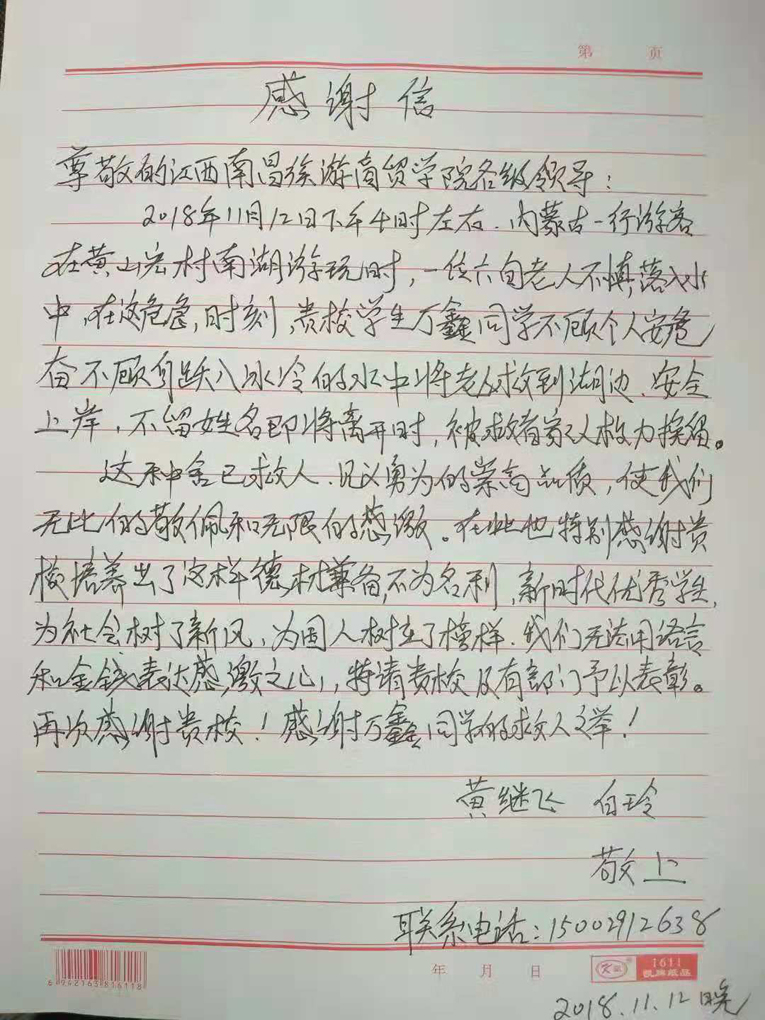 第 页
感谢信
尊敬的江西南昌旅游商贸学院各级领导：
2018年11月12日下午4时左右.内蒙古一行游客
在黄山宏村南湖游玩时，一位六旬老人不慎落入水
中，在这危急，时刻，贵校学生万鑫同学不顾个人安危
奋不顾身跃入冰冷的水中将老人救到湖边、安全
上岸，不留姓名即将离开时，被救者家人极力挽留。
这种舍己救人、见义勇为的崇高品质，使我们
无比的敬佩和无限的感激。在此也特别感谢贵
校培养出了这样德材兼备，不为名利，新时代优秀学生，
为社会树了新风，为国人树立了榜样.我们无法用语言
和金钱表达感激之心，特请贵校及有部门予以表彰。
再次感谢贵校！感谢万鑫同学的救人之举！
黄继飞 白玲
敬上
联系电话：15002912638
年 月 日
1611
6942163816118
2018.11.12晚